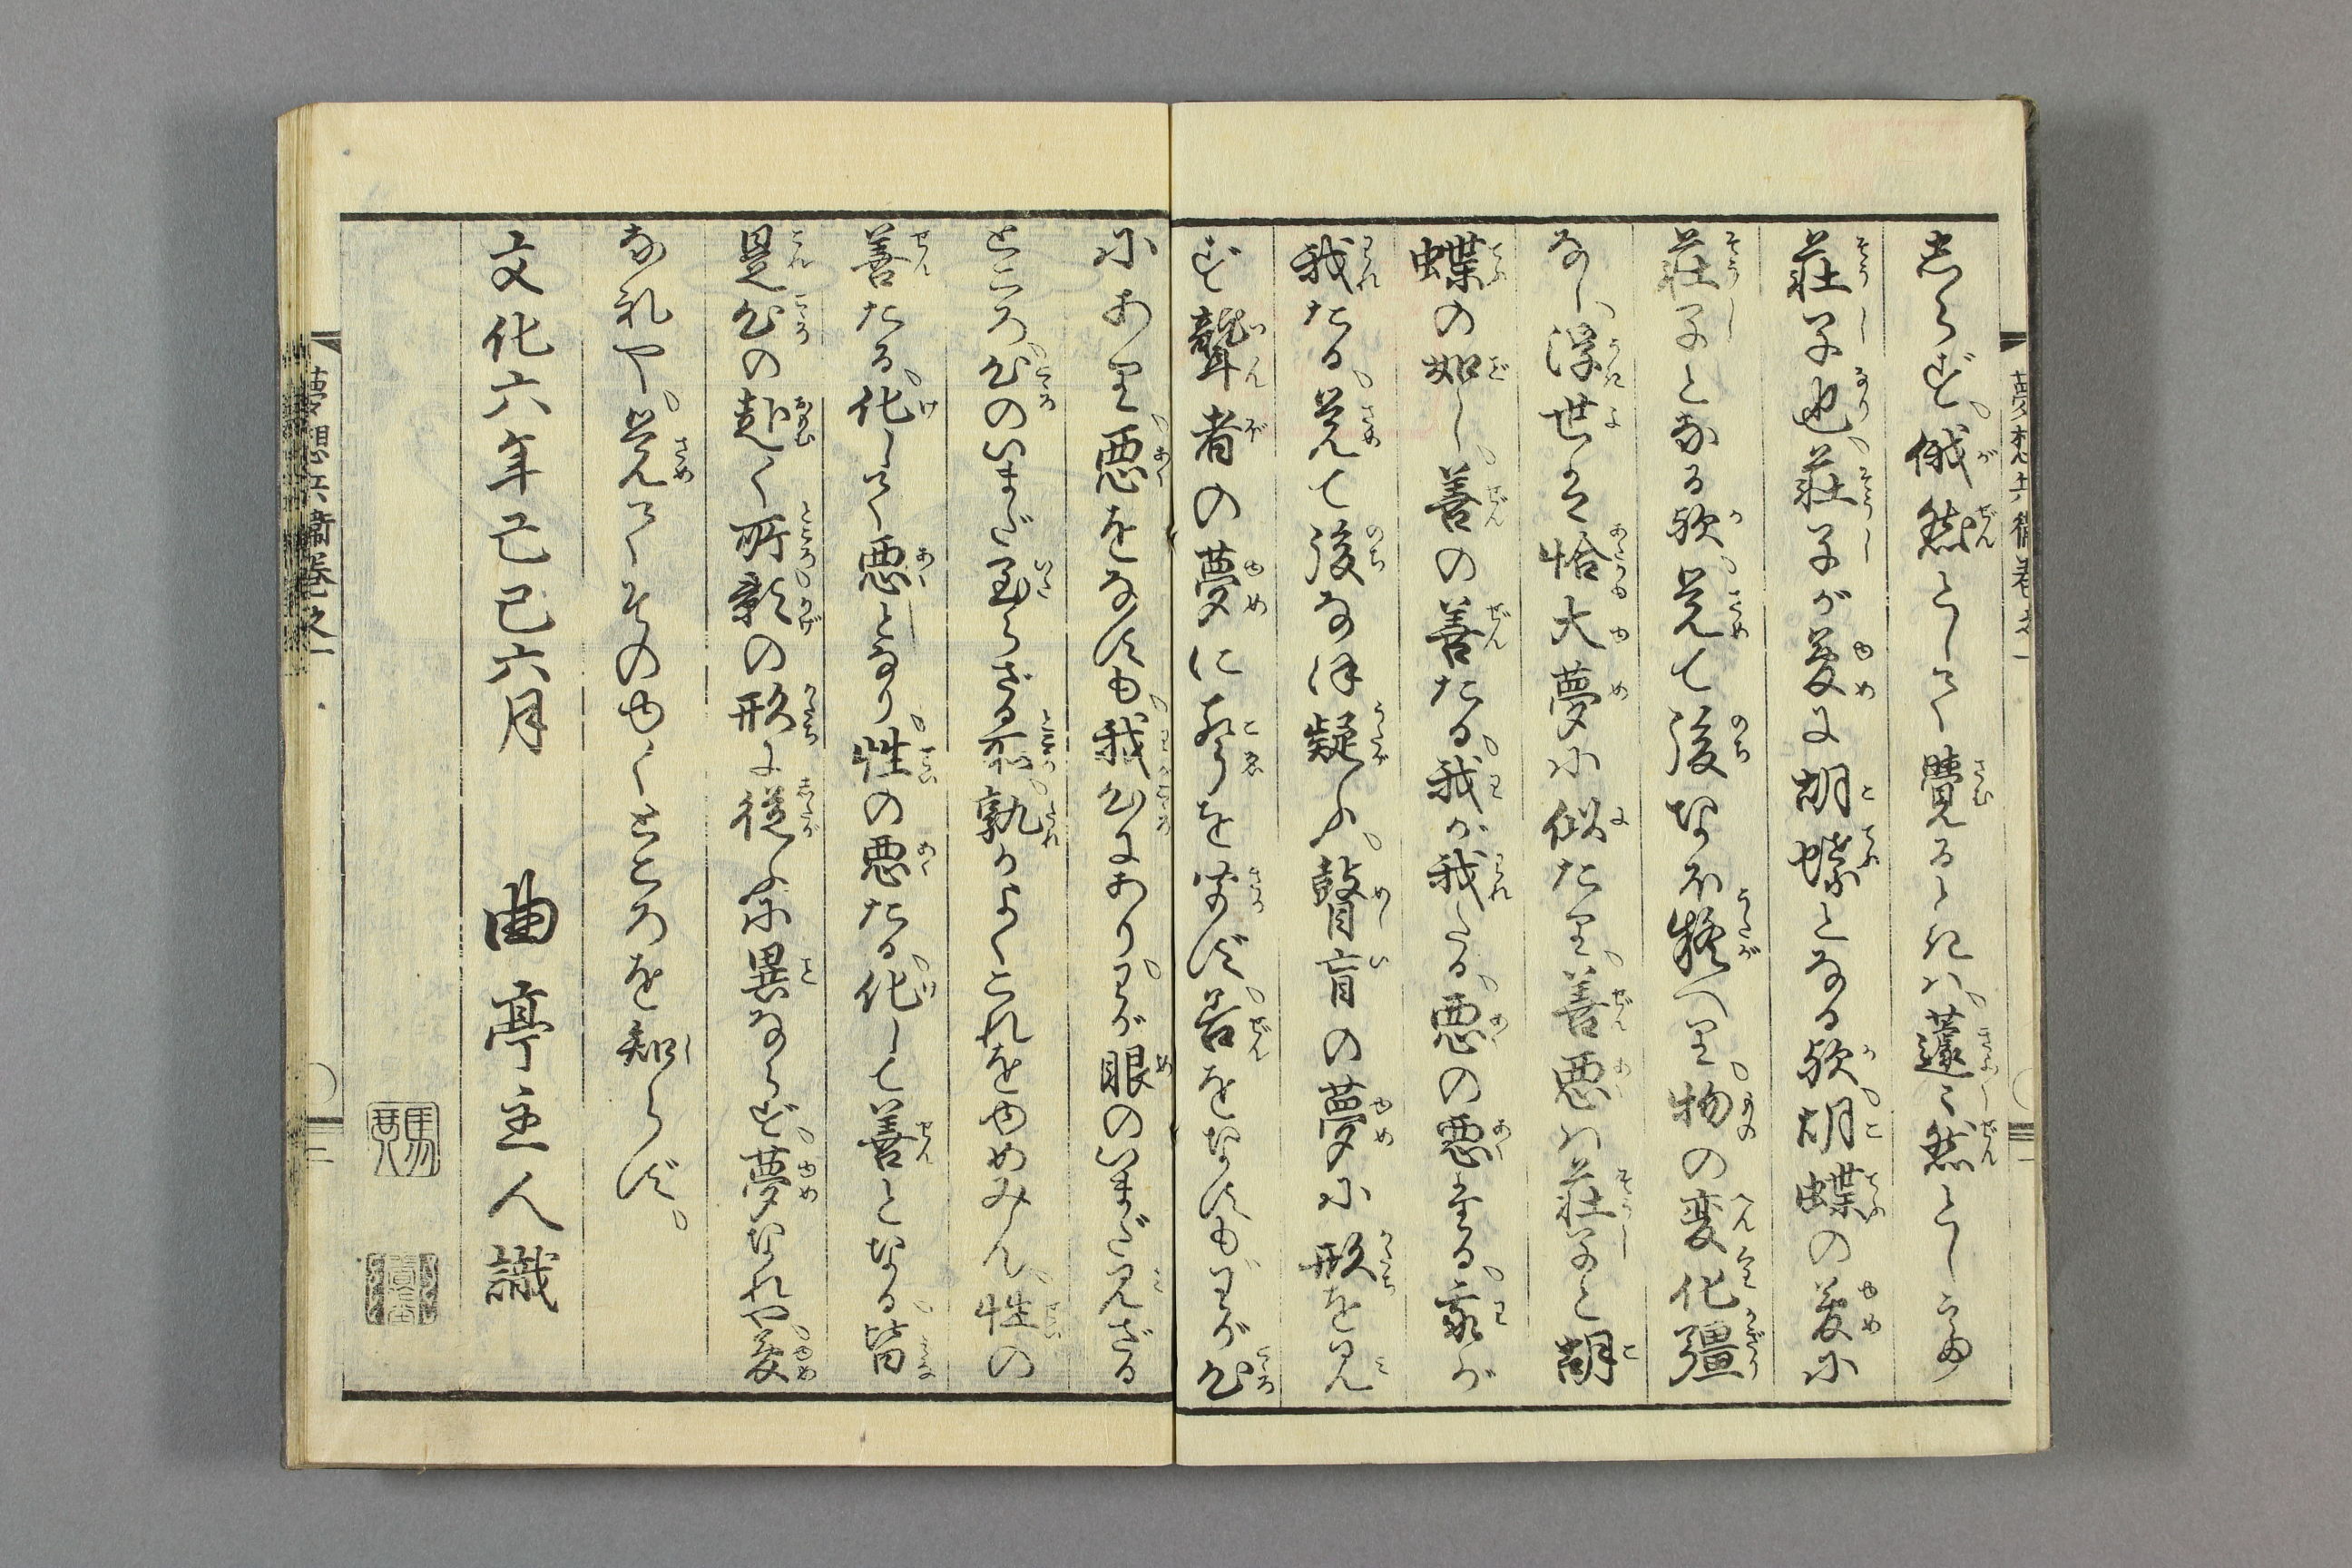 しらず。俄然として覺るときは。蘧々然として
荘子也。荘子が夢に胡蝶となる歟。胡蝶の夢に
荘子となる歟。覚て後なほ疑へり。物の変化彊
なし。浮世は恰大夢に似たり。善悪は荘子と胡
蝶の如し。善の善たる。我が我たる。悪の悪なる。我が
我たる。覚て後なほ疑ふ。瞽盲の夢に形を見
ず聾者の夢に声を聞ず。善をなすも。わが心
にあり。悪をなすも。我心にあり。わが眼のいまだ見ざる
ところ。心のいまだ至らざる所。孰かよくこれをゆめみん。性の
善たる。化して悪となり。性の悪たる。化して善となる。皆
是心の赴く所。影の形に従ふに異ならず。夢なれや。夢
なれや。覚てその由くところを知らず。
文化六年己巳六月　曲亭主人識
夢想兵衛巻之一